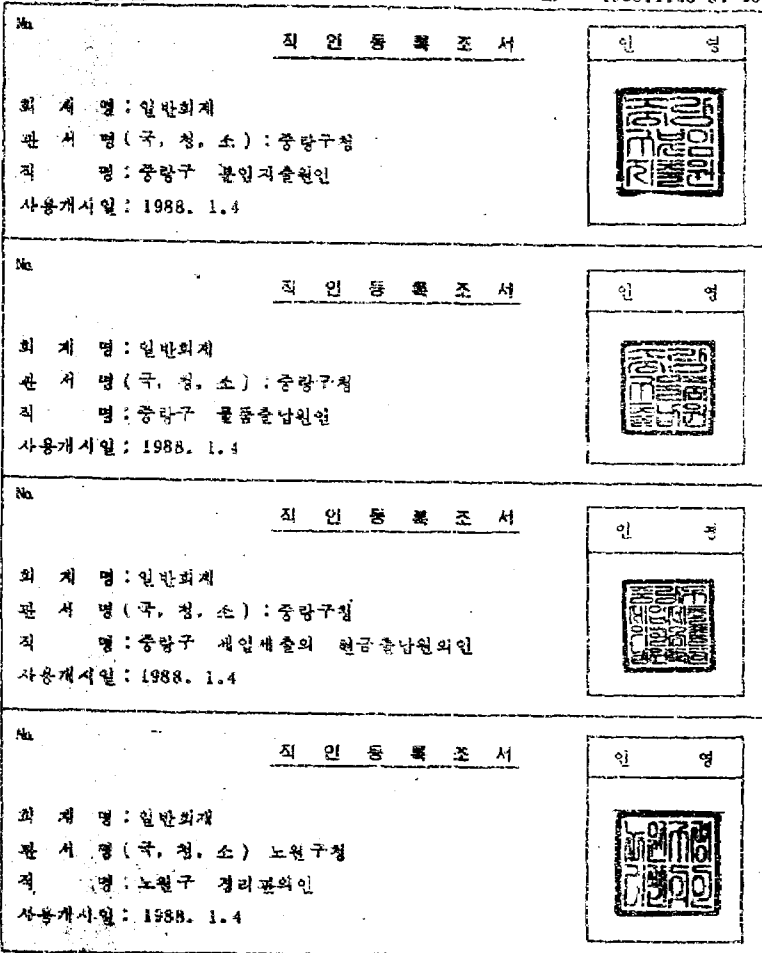 No.
직 인 등 록 조 서
인 영
회 계 명 : 일반회계
관 서 명 ( 국, 청, 소 ) : 중랑구청
직 명 : 중랑구 분임지출원인
사용개시일 : 1988. 1.4
No.
직 인 등 록 조 서
인 영
회 계 명 : 일반회계
관 서 명 ( 국, 청, 소 ) : 중랑구청
직 명 : 중랑구 물품출납원인
사용개시일 : 1988. 1.4
No.
직 인 등 록 조 서
인 영
회 계 명 : 일반회계
관 서 명 ( 국, 청, 소 ) : 중랑구청
직 명 : 중랑구 세입세출외 현금출납원의인
사용개시일 : 1988. 1.4
No.
직 인 등 록 조 서
인 영
회 계 명 : 일반회계
관 서 명 ( 국, 청, 소 ) 노원구청
직 명 : 노원구 경리관의인
사용개시일 : 1988. 1.4